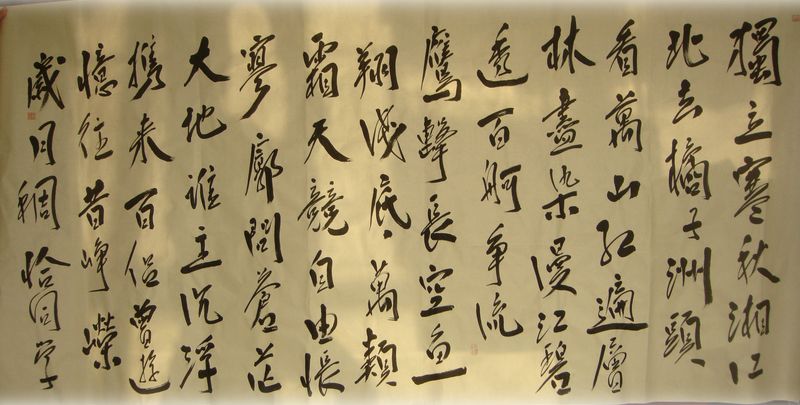 獨立寒秋湘江
北去橘子洲頭
看萬山紅遍層
林盡染漫江碧
透百舸争流
鷹擊長空魚
翔淺底萬類
霜天競自由悵
寥廓問蒼茫
大地誰主沉浮
携來百侣曾遊
憶往昔崢嶸
歲月稠恰同學